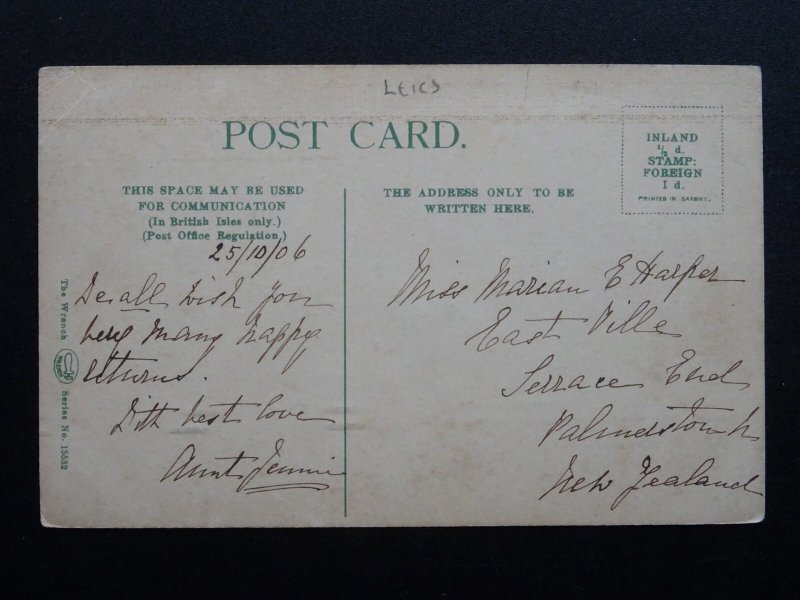 LEICS
POST CARD.
INLAND
½ d.
STAMP:
FOREIGN
1 d.
PRINTED IN SAXONY.
THIS SPACE MAY BE USED
FOR COMMUNICATION
(In British Isles only.)
(Post Office Regulation.)
THE ADDRESS ONLY TO BE
WRITTEN HERE.
25/10/06
We all wish you
very many happy
returns.
With best love
Aunt Jennie
Miss Marian E Harper
East Ville
Terrace End
Palmerston N
New Zealand
The Wrench
Series No. 15532